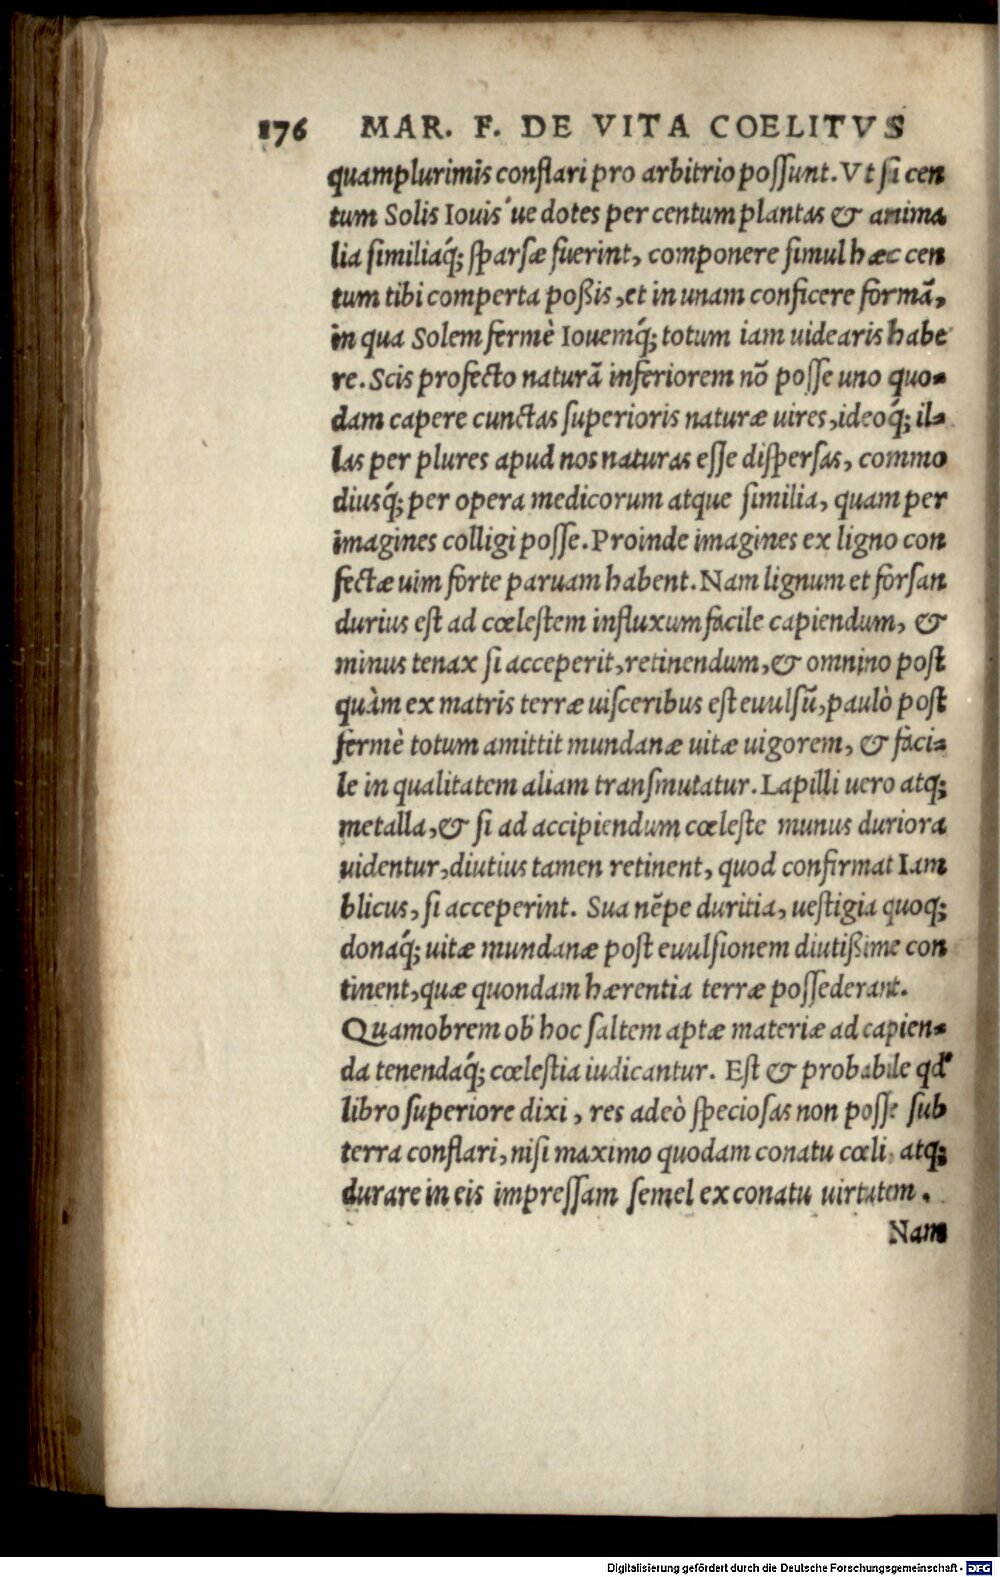 176 MAR. F. DE VITA COELITVS
quamplurimis conflari pro arbitrio possunt. Vt si cen
tum Solis Iouis´ue dotes per centum plantas & anima
lia similiaq́; sparsæ fuerint, componere simul hæc cen
tum tibi comperta poßis, et in unam conficere formā,
in qua Solem fermè Iouemq́; totum iam uidearis habe
re. Scis profecto naturā inferiorem nō posse uno quo-
dam capere cunctas superioris naturæ uires, ideoq́; il-
las per plures apud nos naturas esse dispersas, commo
diusq́; per opera medicorum atque similia, quam per
imagines colligi posse. Proinde imagines ex ligno con
fectæ uim forte paruam habent. Nam lignum et forsan
durius est ad cœlestem influxum facile capiendum, &
minus tenax si acceperit, retinendum, & omnino post
quàm ex matris terræ uisceribus est euulsū, paulò post
fermè totum amittit mundanæ uitæ uigorem, & faci-
le in qualitatem aliam transmutatur. Lapilli uero atq;
metalla, & si ad accipiendum cœleste munus duriora
uidentur, diutius tamen retinent, quod confirmat Iam
blicus, si acceperint. Sua nēpe duritia, uestigia quoq;
donaq́; uitæ mundanæ post euulsionem diutißime con
tinent, quæ quondam hærentia terræ possederant.
Quamobrem ob hoc saltem aptæ materiæ ad capien-
da tenendaq́; cœlestia iudicantur. Est & probabile qd'
libro superiore dixi, res adeò speciosas non posse sub
terra conflari, nisi maximo quodam conatu cœli, atq;
durare in eis impressam semel ex conatu uirtutem.
Nam
Digitalisierung gefördert durch die Deutsche Forschungsgemeinschaft - DFG